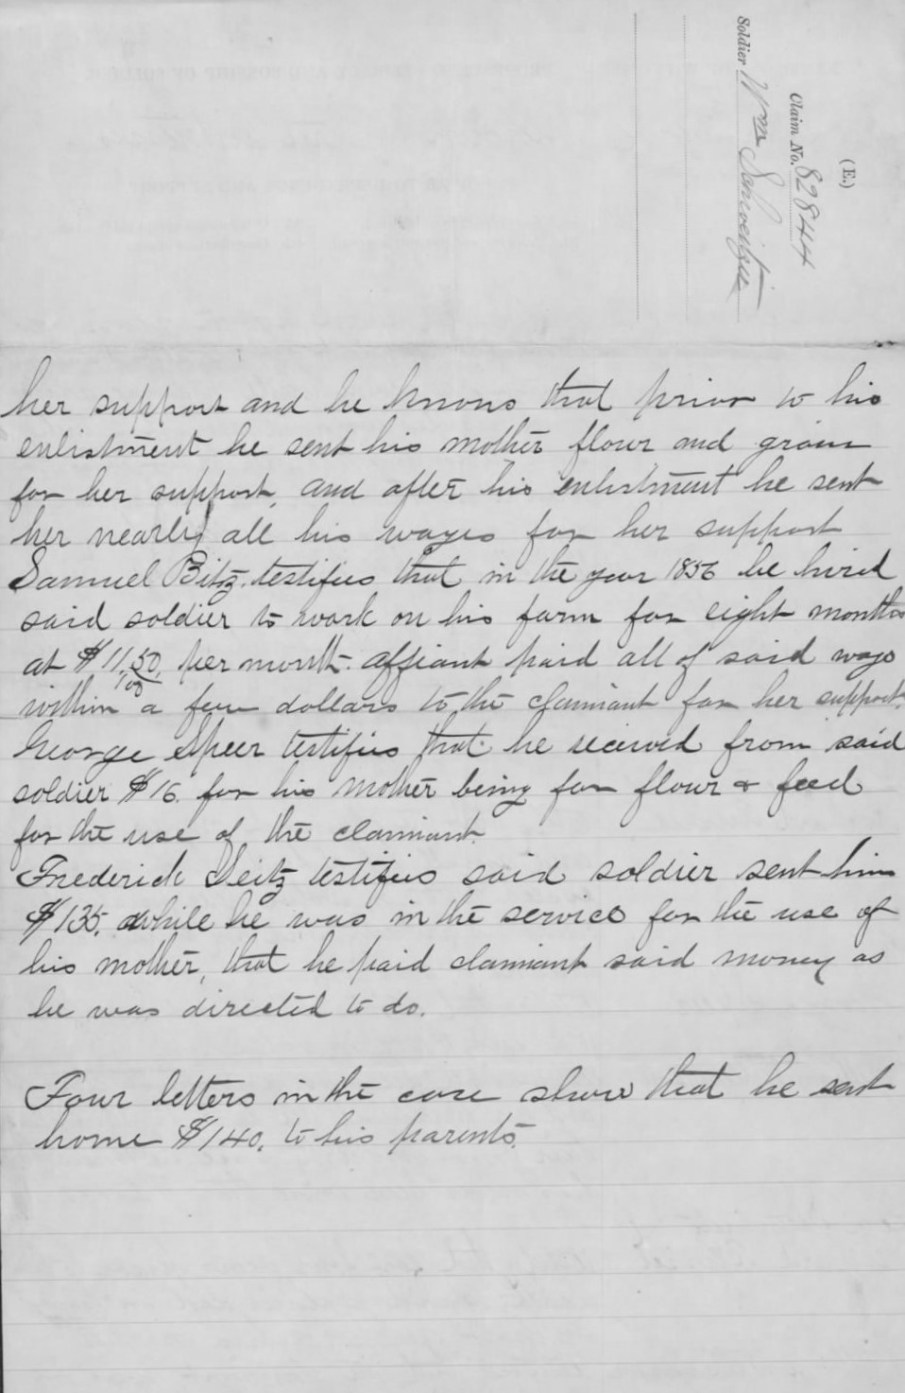 (E.)
Claim No. 82844
Soldier Wm
her support and he knows that prior to his
enlistment he sent his mother flour and grain
for her support, and after his enlistment he sent
her nearly all his wages for her support
Samuel Bitz testifies that in the year 1856 he hired
said soldier to work on his farm for eight months
at $11,50/100 per month. affiant paid all of said wages
within a few dollars to the claimant for her support.
George Speer testifies that he received from said
soldier $16. for his mother being for flour & feed
for the use of the claimant.
Frederick Seitz testifies said soldier sent him
$135, while he was in the service for the use of
his mother, that he paid claimant said money as
he was directed to do.
Four letters in the case show that he sent
home $140, to his parents.